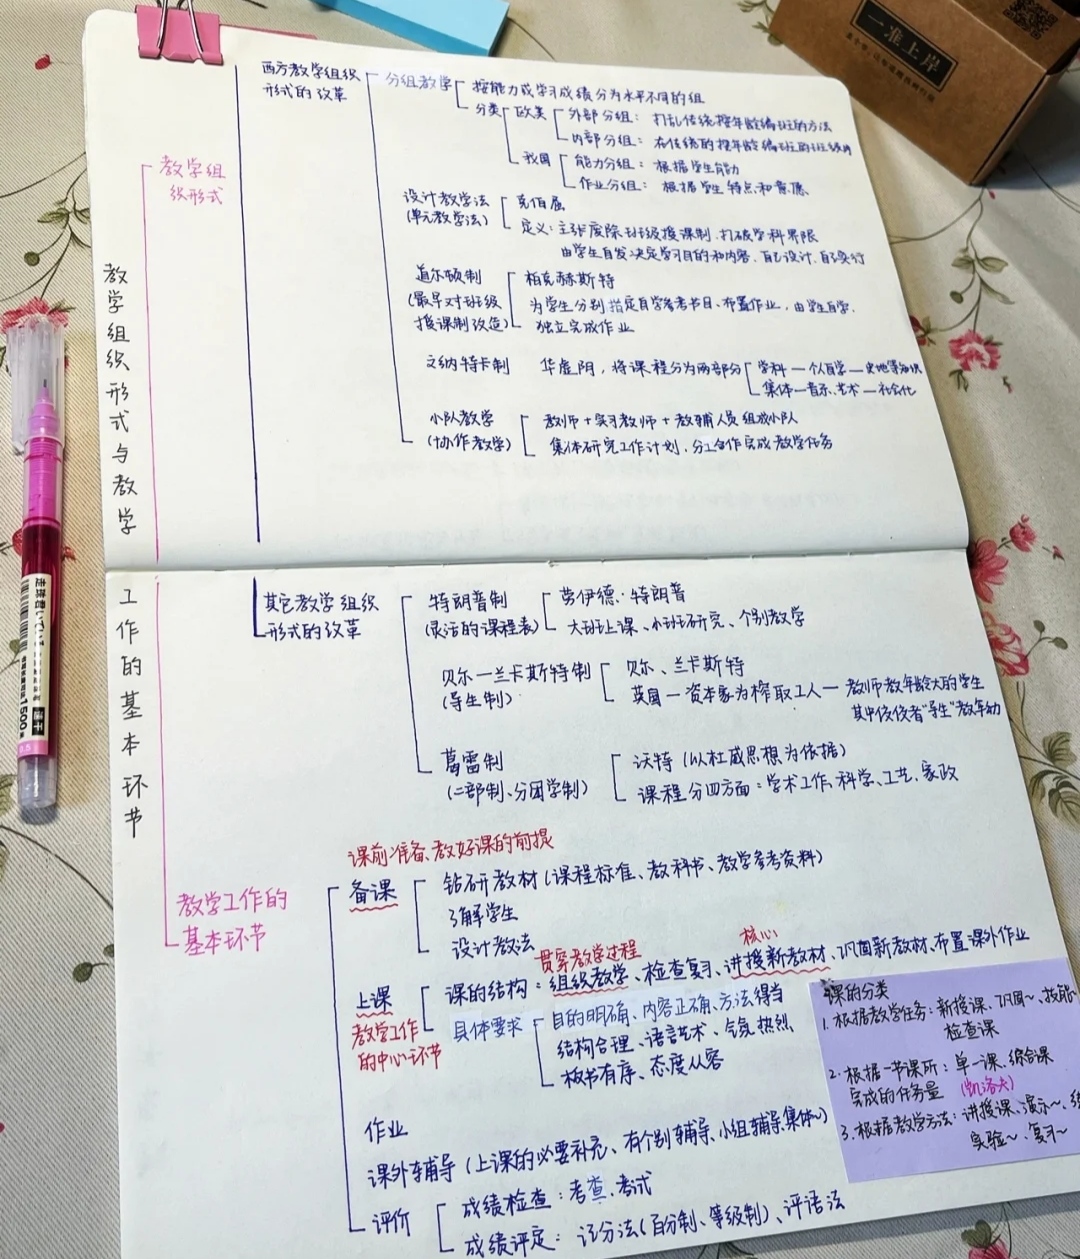 一准上岸
教学组织形式与教学工作的基本环节
教学组
织形式
西方教学组织
形式的改革
分组教学
按能力或学习成绩分为水平不同的组
分类
欧美
外部分组：打乱传统按年龄编班的方法
内部分组：在传统的按年龄编班的班级内
我国
能力分组：根据学生能力
作业分组：根据学生特点和意愿
设计教学法
(单元教学法)
克伯屈
定义：主张废除班级授课制、打破学科界限
由学生自发决定学习目的和内容、自己设计、自己实行
道尔顿制
(最早对班级
授课制改造)
柏克赫斯特
为学生分别指定自学参考书目、布置作业，由学生自学、
独立完成作业
文纳特卡制
华虚朋，将课程分为两部分
学科一个人自学一史地等知识
集体一音乐、艺术一社会化
小队教学
(协作教学)
教师+实习教师+教辅人员组成小队
集体研究工作计划，分工合作完成教学任务
其它教学组织
形式的改革
特朗普制
(灵活的课程表)
劳伊德·特朗普
大班上课、小班研究、个别教学
贝尔一兰卡斯特制
(导生制)
贝尔、兰卡斯特
英国一资本家为榨取工人一教师教年龄大的学生
其中佼佼者"导生"教年幼
葛雷制
(二部制、分团学制)
沃特(以杜威思想为依据)
课程分四方面：学术工作、科学、工艺、家政
教学工作的
基本环节
课前准备、教好课的前提
备课
钻研教材(课程标准、教科书、教学参考资料)
了解学生
设计教法
贯穿教学过程
核心
上课
教学工作
的中心环节
课的结构：组织教学、检查复习、讲授新教材、巩固新教材、布置课外作业
具体要求
目的明确、内容正确、方法得当
结构合理、语言艺术、气氛热烈
板书有序、态度从容
作业
课外辅导(上课的必要补充、有个别辅导、小组辅导、集体~)
评价
成绩检查：考查、考试
成绩评定：记分法(百分制、等级制)、评语法
课的分类
1.根据教学任务：新授课、巩固~、技能
检查课
2.根据一节课所：单一课、综合课
完成的任务量 (凯洛夫)
3.根据教学方法：讲授课、演示~、练
实验~、复习~
1500